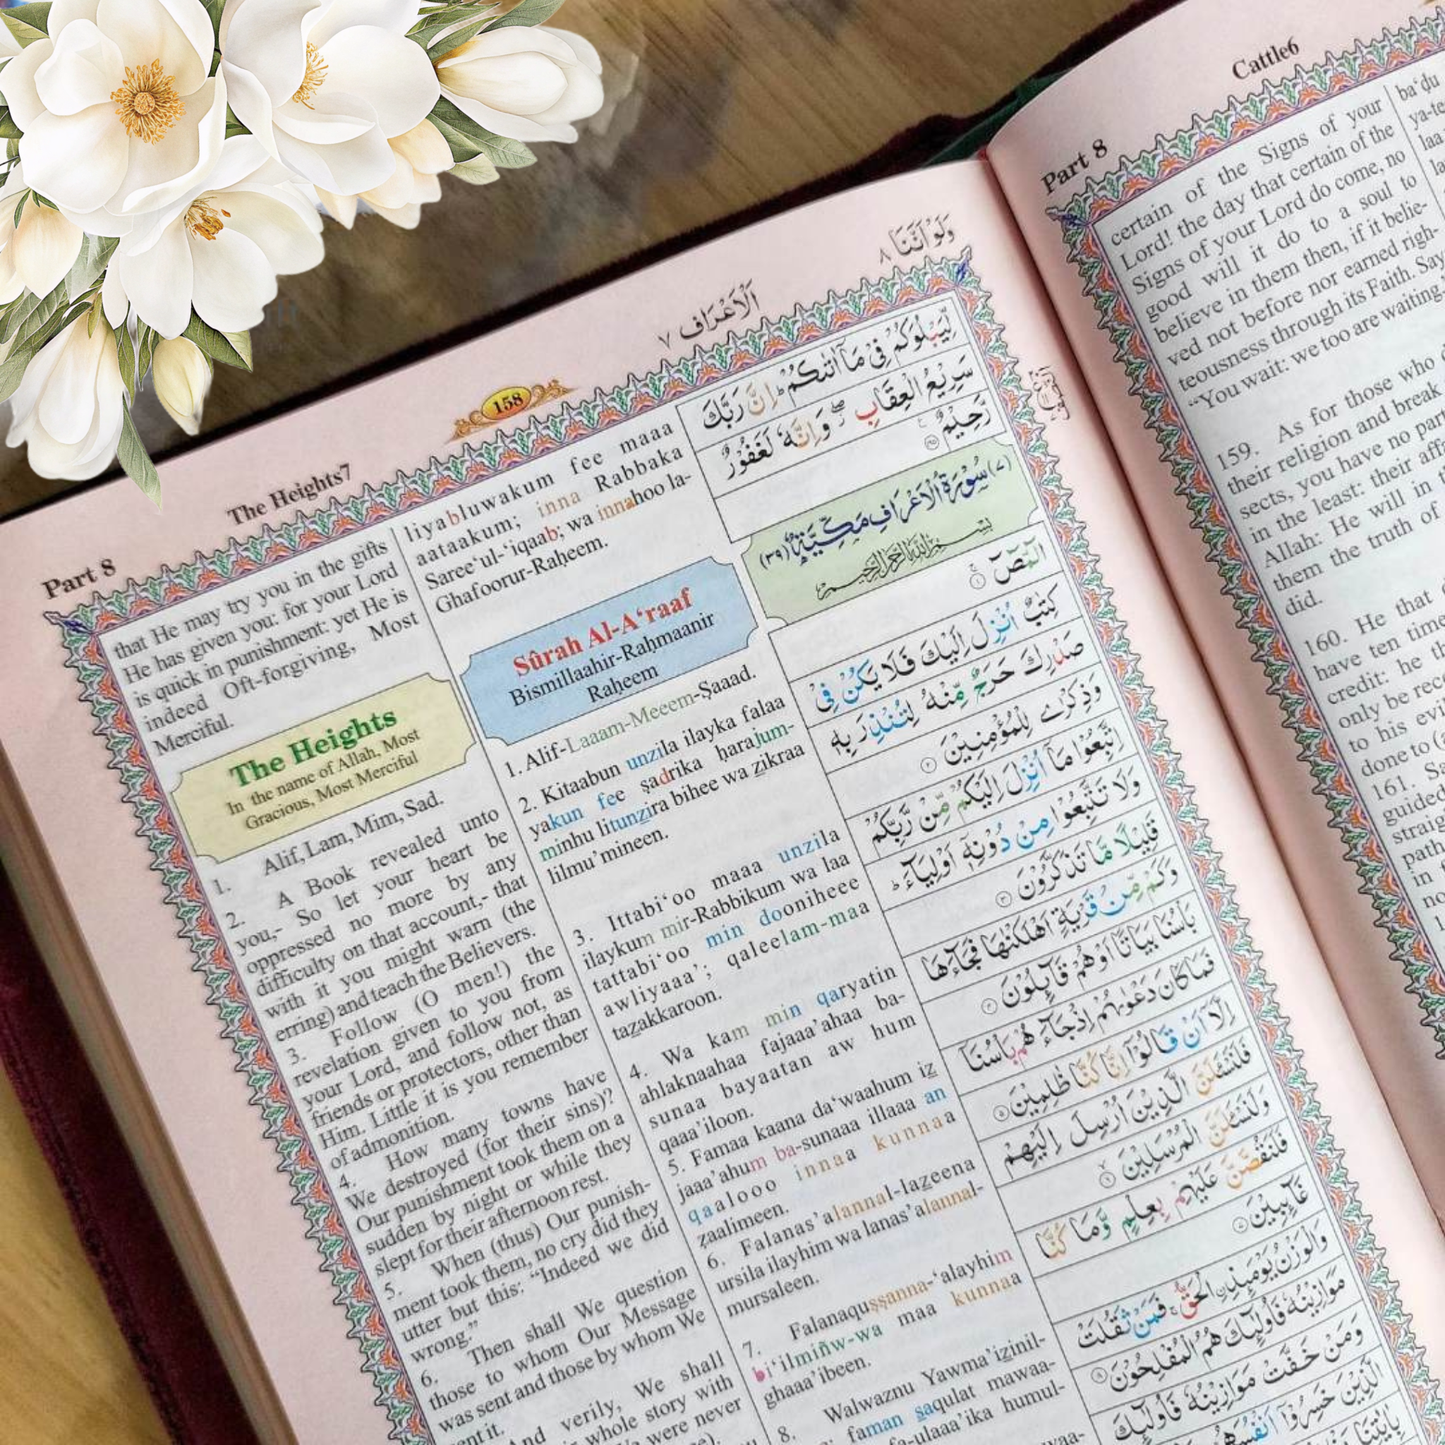 Part 8
The Heights7
158
اَلْاَعْرَاف ٧
وَلَوْ اَنَّنَا ٨
that He may try you in the gifts
He has given you: for your Lord
is quick in punishment: yet He is
indeed Oft-forgiving, Most
Merciful.
The Heights
In the name of Allah, Most
Gracious, Most Merciful
1. Alif, Lam, Mim, Sad.
2. A Book revealed unto
you,- So let your heart be
oppressed no more by any
difficulty on that account,- that
with it you might warn (the
erring) and teach the Believers.
3. Follow (O men!) the
revelation given to you from
your Lord, and follow not, as
friends or protectors, other than
Him. Little it is you remember
of admonition.
4. How many towns have
We destroyed (for their sins)?
Our punishment took them on a
sudden by night or while they
slept for their afternoon rest.
5. When (thus) Our punish-
ment took them, no cry did they
utter but this: “Indeed we did
wrong.”
6. Then shall We question
those to whom Our Message
was sent and those by whom We
sent it.
And verily, We shall
whole story with
were never
liyabluwakum fee maaa
aataakum; inna Rabbaka
Saree‘ul-‘iqaab; wa innahoo la-
Ghafoorur-Raḥeem.
Sûrah Al-A‘raaf
Bismillaahir-Raḥmaanir
Raḥeem
1. Alif-Laaam-Meeem-Ṣaaad.
2. Kitaabun unzila ilayka falaa
yakun fee ṣadrika ḥarajum-
minhu litunzira bihee wa zikraa
lilmu’mineen.
3. Ittabi‘oo maaa unzila
ilaykum mir-Rabbikum wa laa
tattabi‘oo min dooniheee
awliyaaa’; qaleelam-maa
tazakkaroon.
4. Wa kam min qaryatin
ahlaknaahaa fajaaa’ahaa ba-
sunaa bayaatan aw hum
qaaa’iloon.
5. Famaa kaana da‘waahum iz
jaaa’ahum ba-sunaaa illaaa an
qaalooo innaa kunnaa
ẓaalimeen.
6. Falanas’alannal-lazeena
ursila ilayhim wa lanas’alannal-
mursaleen.
7. Falanaquṣṣanna-‘alayhim
bi‘ilmiñw-wa maa kunnaa
ghaaa’ibeen.
8. Walwaznu Yawma’izinil-
faman saqulat mawaa-
fa-ulaaa’ika humul-
لِّيَبْلُوَكُمْ فِيْ مَاۤ اٰتٰىكُمْ ؕ اِنَّ رَبَّكَ
سَرِيْعُ الْعِقَابِ ۖ وَاِنَّهٗ لَغَفُوْرٌ
رَّحِيْمٌ
(٧) سُوْرَةُ الْاَعْرَافِ مَكِّيَّةٌ (٣٩)
بِسْمِ اللّٰهِ الرَّحْمٰنِ الرَّحِيْمِ
الٓمّٓصٓ ۚ
كِتٰبٌ اُنْزِلَ اِلَيْكَ فَلَا يَكُنْ فِيْ
صَدْرِكَ حَرَجٌ مِّنْهُ لِتُنْذِرَ بِهٖ
وَذِكْرٰى لِلْمُؤْمِنِيْنَ
اِتَّبِعُوْا مَاۤ اُنْزِلَ اِلَيْكُمْ مِّنْ رَّبِّكُمْ
وَلَا تَتَّبِعُوْا مِنْ دُوْنِهٖۤ اَوْلِيَآءَ ؕ
قَلِيْلًا مَّا تَذَكَّرُوْنَ
وَكَمْ مِّنْ قَرْيَةٍ اَهْلَكْنٰهَا فَجَآءَهَا
بَاْسُنَا بَيَاتًا اَوْ هُمْ قَآئِلُوْنَ
فَمَا كَانَ دَعْوٰىهُمْ اِذْ جَآءَهُمْ بَاْسُنَاۤ
اِلَّاۤ اَنْ قَالُوْۤا اِنَّا كُنَّا ظٰلِمِيْنَ
فَلَنَسْئَلَنَّ الَّذِيْنَ اُرْسِلَ اِلَيْهِمْ
وَلَنَسْئَلَنَّ الْمُرْسَلِيْنَ
فَلَنَقُصَّنَّ عَلَيْهِمْ بِعِلْمٍ وَّمَا كُنَّا
غَآئِبِيْنَ
وَالْوَزْنُ يَوْمَئِذِ ِۨالْحَقُّ ۚ فَمَنْ ثَقُلَتْ
مَوَازِيْنُهٗ فَاُولٰٓئِكَ هُمُ الْمُفْلِحُوْنَ
وَمَنْ خَفَّتْ مَوَازِيْنُهٗ فَاُولٰٓئِكَ
الَّذِيْنَ خَسِرُوْۤا اَنْفُسَهُمْ
Part 8
Cattle6
certain of the Signs of your
Lord! the day that certain of the
Signs of your Lord do come, no
good will it do to a soul to
believe in them then, if it belie-
ved not before nor earned righ-
teousness through its Faith. Say
“You wait: we too are waiting
159. As for those who
their religion and break
sects, you have no part
in the least: their aff
Allah: He will in
them the truth of
did.
160. He that
have ten time
credit: he th
only be rec
to his evi
done to
161. Sa
guided
straig
path
in
ba‘ḍu
ya-te
laa
la